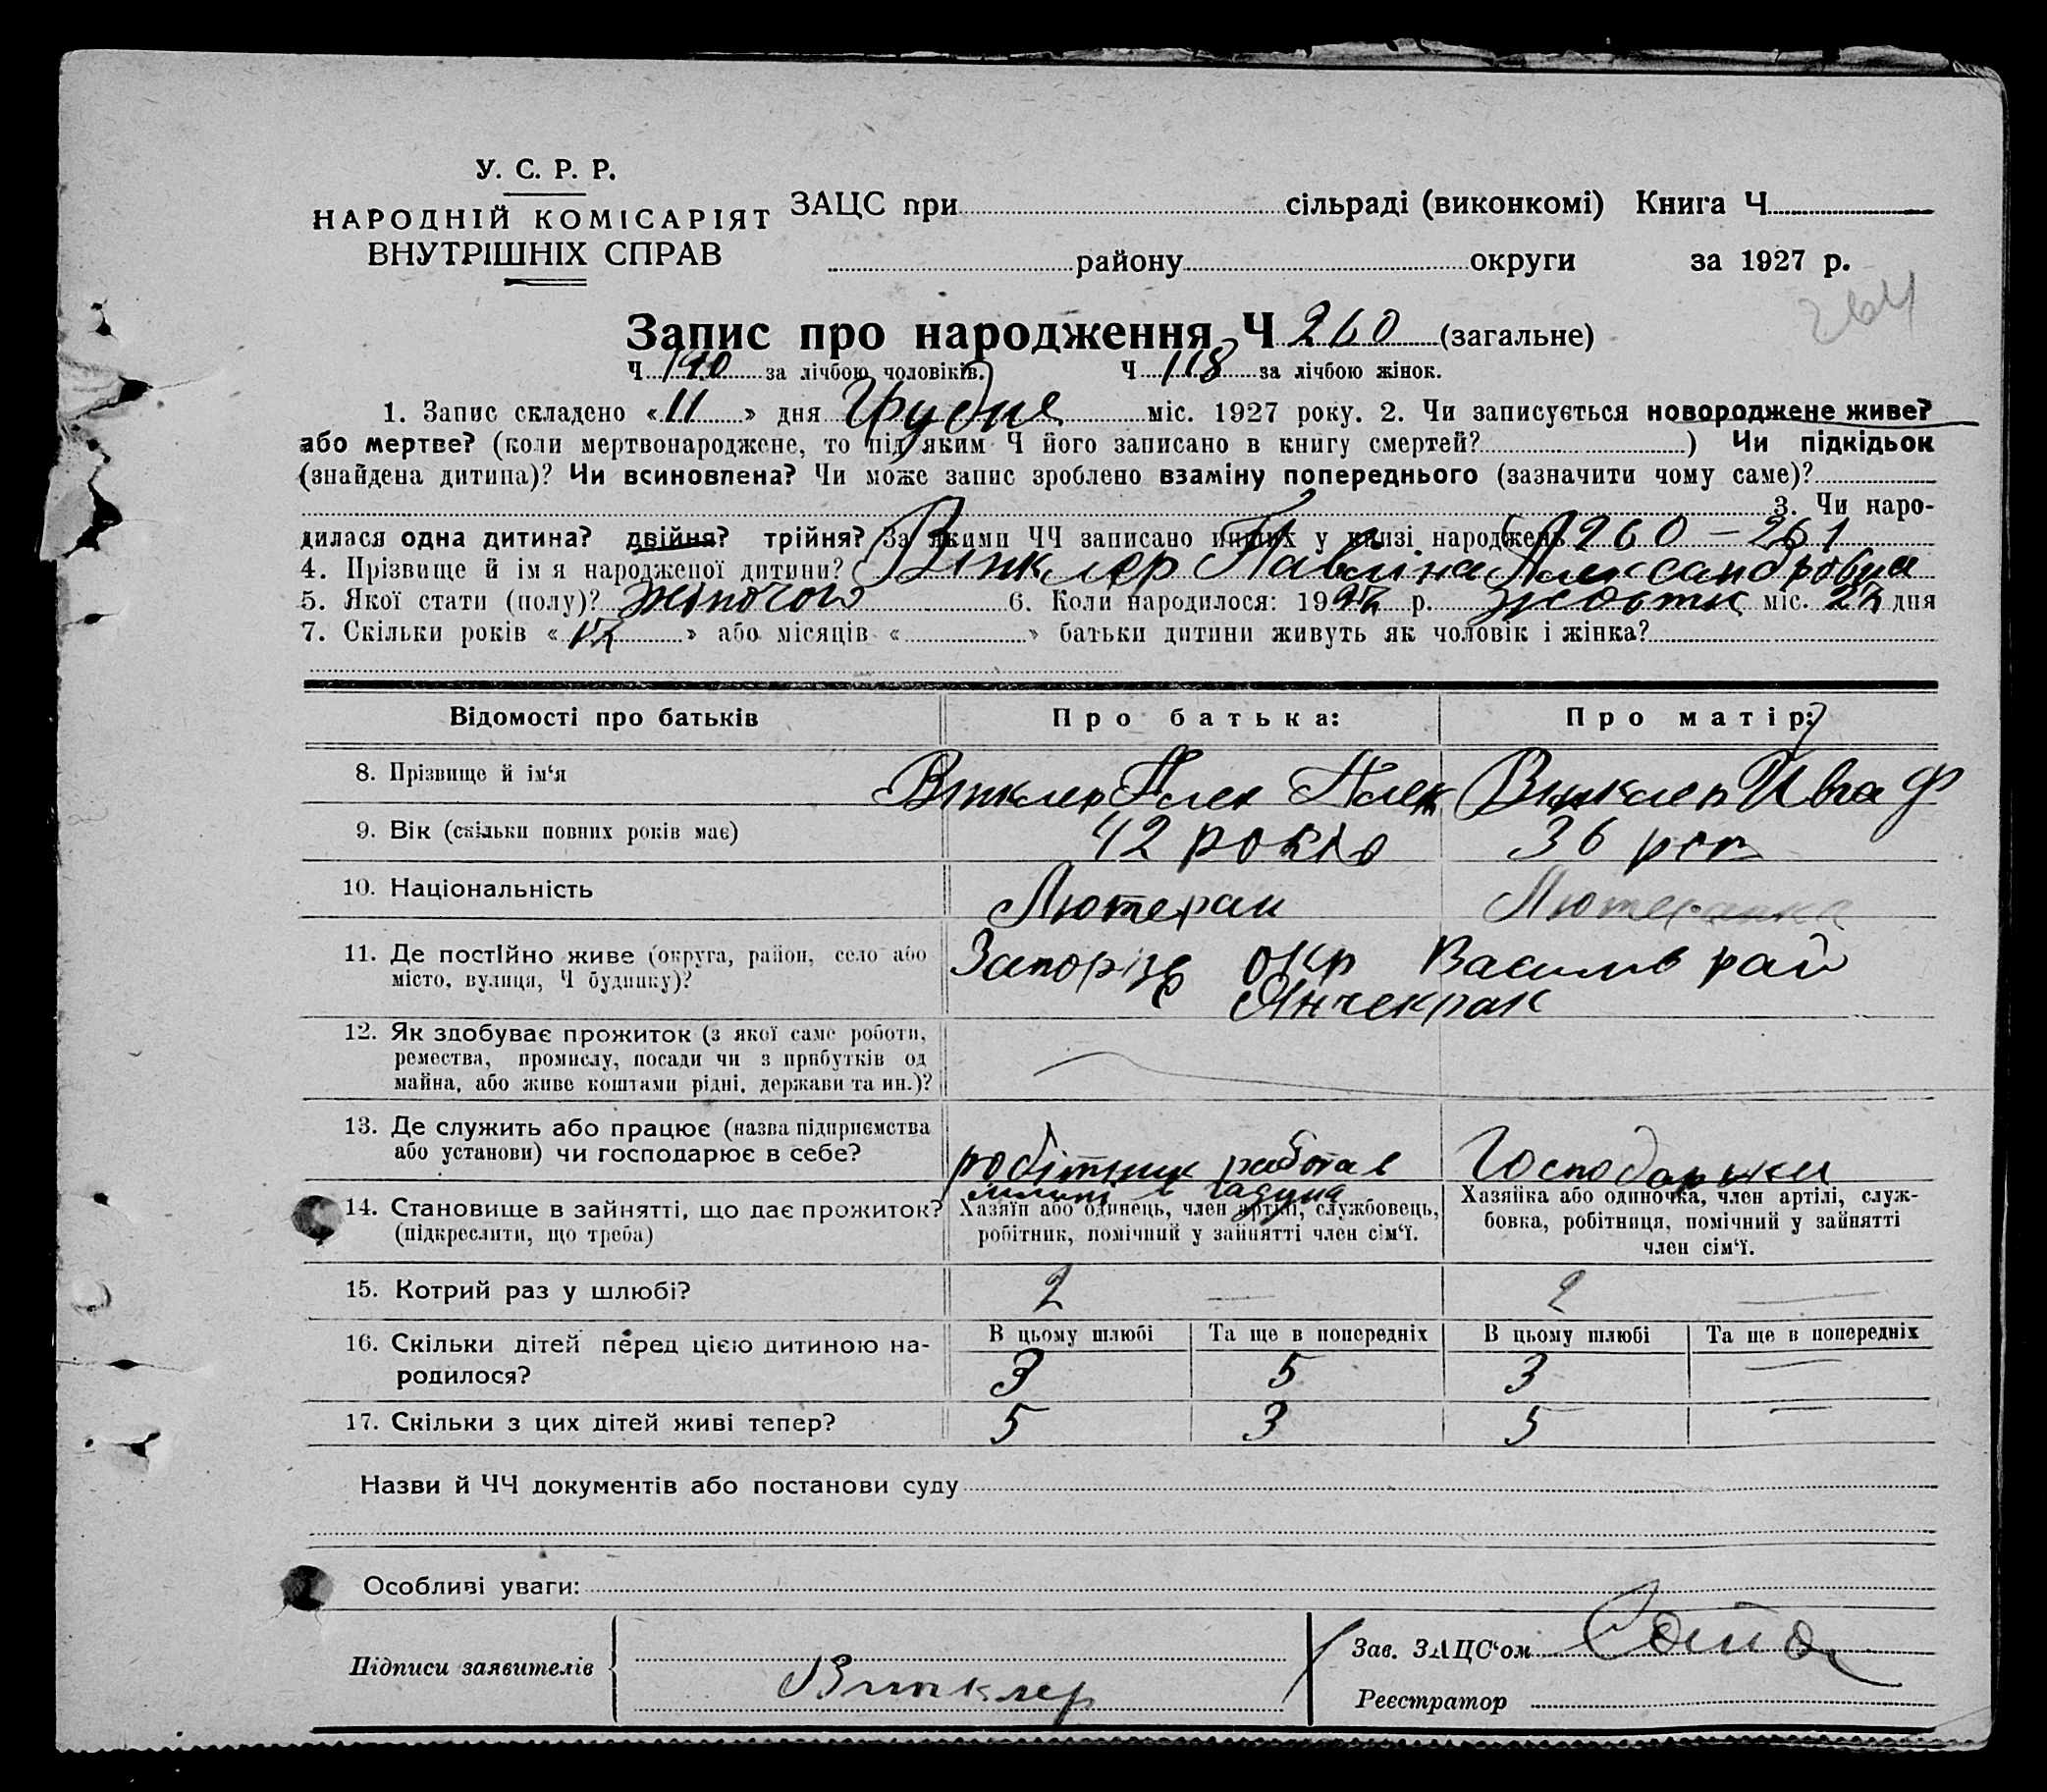 У. С. Р. Р.
НАРОДНІЙ КОМІСАРІЯТ
ВНУТРІШНІХ СПРАВ
ЗАЦС при сільраді (виконкомі) Книга Ч
району округи за 1927 р.
264
Запис про народження Ч 260 (загальне)
Ч 140 за лічбою чоловіків. Ч 118 за лічбою жінок.
1. Запис складено « 11 » дня Грудня міс. 1927 року. 2. Чи записується новороджене живе?
або мертве? (коли мертвонароджене, то під яким Ч його записано в книгу смертей? ) Чи підкідьок
(знайдена дитина)? Чи всиновлена? Чи може запис зроблено взаміну попереднього (зазначити чому саме)?
3. Чи наро-
дилася одна дитина? двійня? трійня? За якими ЧЧ записано инших у книзі народжень 260 — 261
4. Прізвище й ім я народженої дитини? Вінклер Павліна Александровна
5. Якої стати (полу)? жіночої 6. Коли народилося: 1927 р. жовтня міс. 27 дня
7. Скільки років « » або місяців « » батьки дитини живуть як чоловік і жінка?
Відомості про батьків Про батька: Про матір:
8. Прізвище й ім‘я Вінклер Алек Алек Вінклер Ф
9. Вік (скільки повних років має) 42 років 36 рок
10. Національність Лютеран Лютеранка
11. Де постійно живе (округа, район, село або місто, вулиця, Ч будинку)? Запорізь окр Васильв рай
Янчекрак
12. Як здобуває прожиток (з якої саме роботи,
ремества, промислу, посади чи з прибутків од
майна, або живе коштами рідні, держави та ин.)?
13. Де служить або працює (назва підприємства
або установи) чи господарює в себе? робітник работае Господаржи
14. Становище в зайнятті, що дає прожиток?
(підкреслити, що треба)
Хазяїн або одинець, член артілі, службовець,
робітник, помічний у зайнятті член сім‘ї.
Хазяйка або одиночка, член артілі, служ-
бовка, робітниця, помічний у зайнятті
член сім‘ї.
15. Котрий раз у шлюбі? 2 — 2 —
16. Скільки дітей перед цією дитиною на-
родилося?
В цьому шлюбі Та ще в попередніх В цьому шлюбі Та ще в попередніх
3 5 3 —
17. Скільки з цих дітей живі тепер? 5 3 5 —
Назви й ЧЧ документів або постанови суду
Особливі уваги:
Підписи заявителів Винклер
Зав. ЗАЦС‘ом
Реєстратор